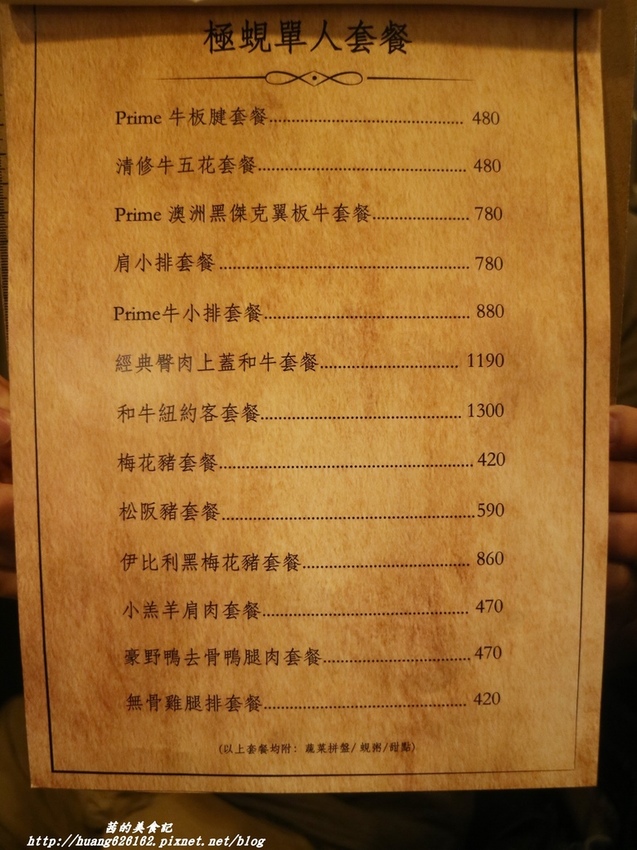 極蜆單人套餐
Prime 牛板腱套餐 480
清修牛五花套餐 480
Prime 澳洲黑傑克翼板牛套餐 780
肩小排套餐 780
Prime牛小排套餐 880
經典臀肉上蓋和牛套餐 1190
和牛紐約客套餐 1300
梅花豬套餐 420
松阪豬套餐 590
伊比利黑梅花豬套餐 860
小羔羊肩肉套餐 470
豪野鴨去骨鴨腿肉套餐 470
無骨雞腿排套餐 420
(以上套餐均附: 蔬菜拼盤/ 蜆粥/甜點)
茜的美食記
http://huang626162.pixnet.net/blog